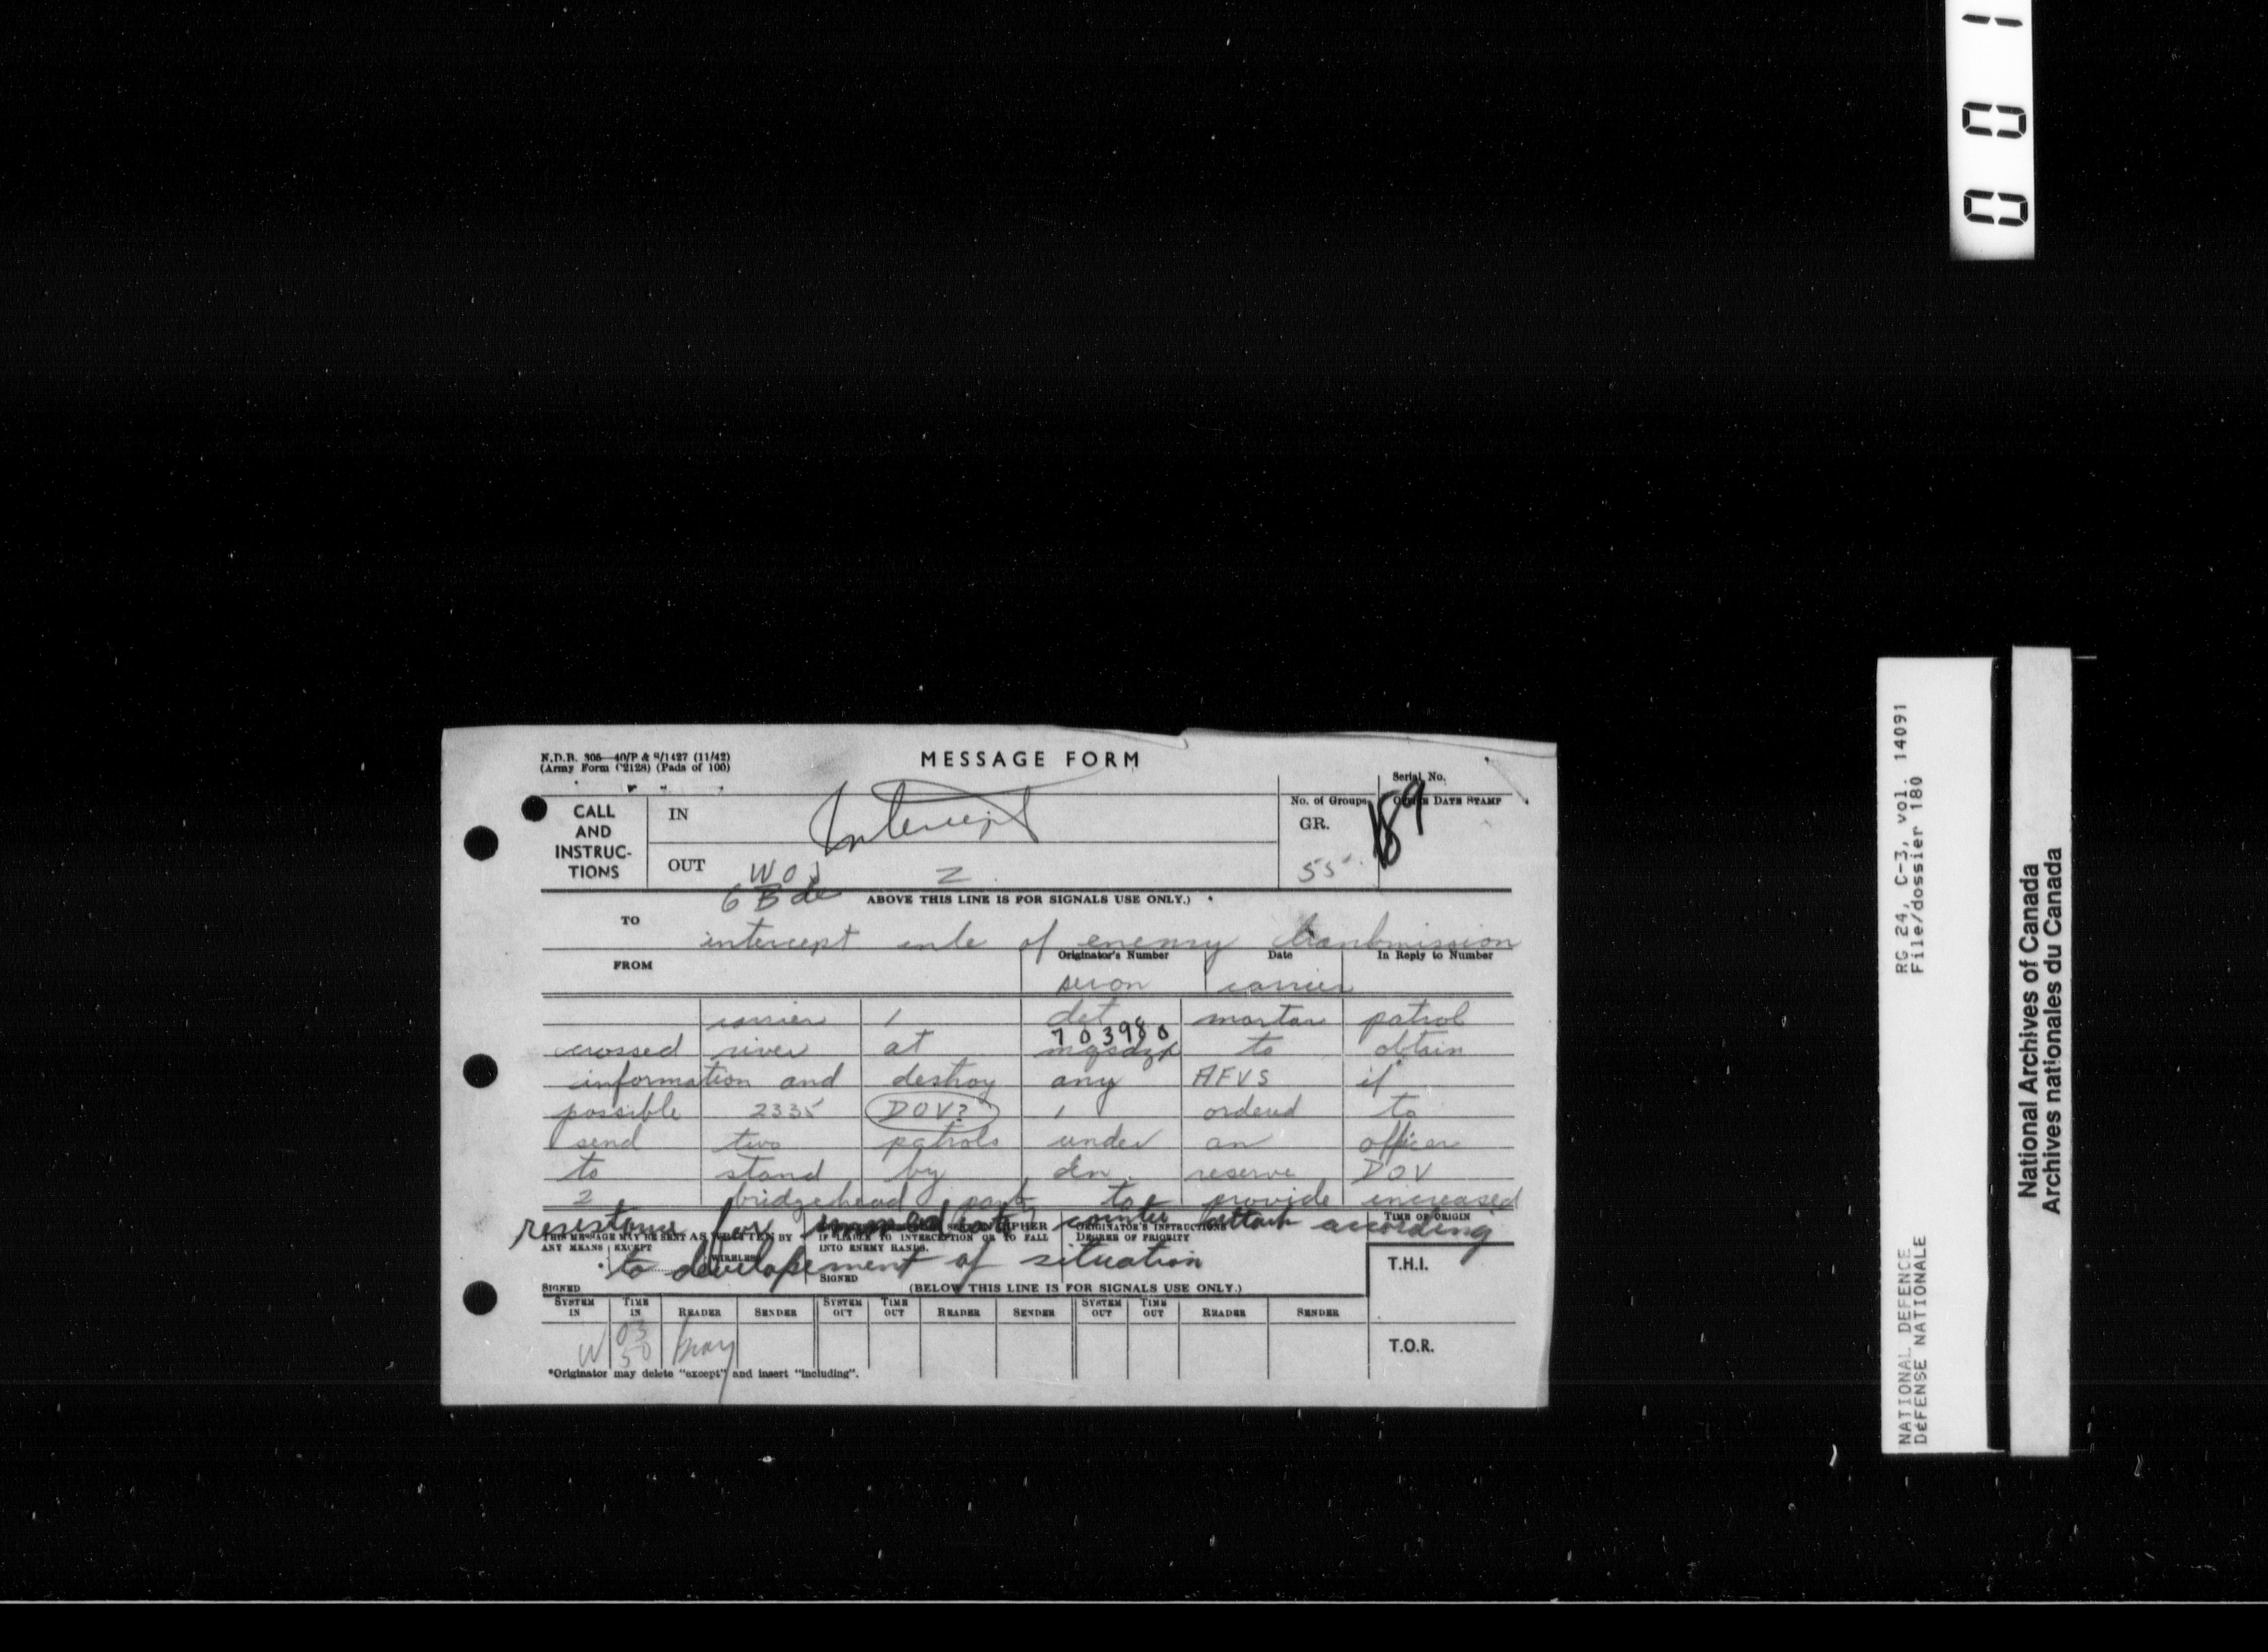 001
N.D.B. 305—40/P & S/1427 (11/42)
(Army Form C2128) (Pads of 100)
MESSAGE FORM
Serial No.
189
CALL
AND
INSTRUC-
TIONS
IN
Intercept
No. of Groups
GR.
OFFICE DATE STAMP
OUT
Z
55
6 Bde
ABOVE THIS LINE IS FOR SIGNALS USE ONLY.)
TO
intercept of enemy transmission
FROM
Originator's Number
Date
In Reply to Number
carrier
carrier 1 det mortar patrol
703980
crossed river at to obtain
information and destroy any AFVS if
possible 2335 DOV? 1 ordend to
send two patrols under an officer
to stand by in reserve DOV
2 bridgehead to provide increased
resistance for immediate counter attack according
THIS MESSAGE MAY BE SENT AS WRITTEN BY
ANY MEANS EXCEPT
WIRELESS
IF LIABLE TO INTERCEPTION OR TO FALL
INTO ENEMY HANDS.
ORIGINATOR'S INSTRUCTIONS
DEGREE OF PRIORITY
TIME OF ORIGIN
to developement of situation
T.H.I.
SIGNED
SIGNED
(BELOW THIS LINE IS FOR SIGNALS USE ONLY.)
SYSTEM IN TIME IN READER SENDER SYSTEM OUT TIME OUT READER SENDER SYSTEM OUT TIME OUT READER SENDER
W 03 50 Gray
T.O.R.
*Originator may delete "except" and insert "including".
RG 24, C-3, vol. 14091
File/dossier 180
NATIONAL DEFENCE
DéFENSE NATIONALE
National Archives of Canada
Archives nationales du Canada